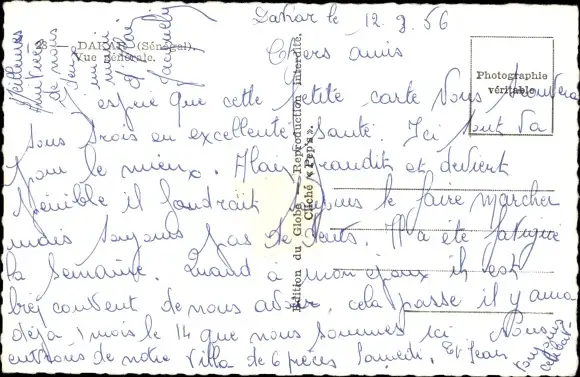 Dakar le 12.3.56
Chers amis
J'espère que cette petite carte vous trouvera
tous trois en excellente santé. Ici tout va
pour le mieux. Alain grandit et devient
pénible il faudrait toujours le faire marcher
mais toujours pas de dents. Il a été fatigué
la semaine. Quand à mon époux il est
très content de nous avoir, cela passe il y aura
déjà 1 mois le 14 que nous sommes ici. Nous
entrons de notre villa de 6 pièces Samedi. Et Jean
toujours
célibat.
Meilleures
amitiés
de nous
Jacqueline
— DAKAR (Sénégal).
Vue générale.
Édition du Globe — Reproduction interdite.
Cliché « Pep's ».
Photographie
véritable